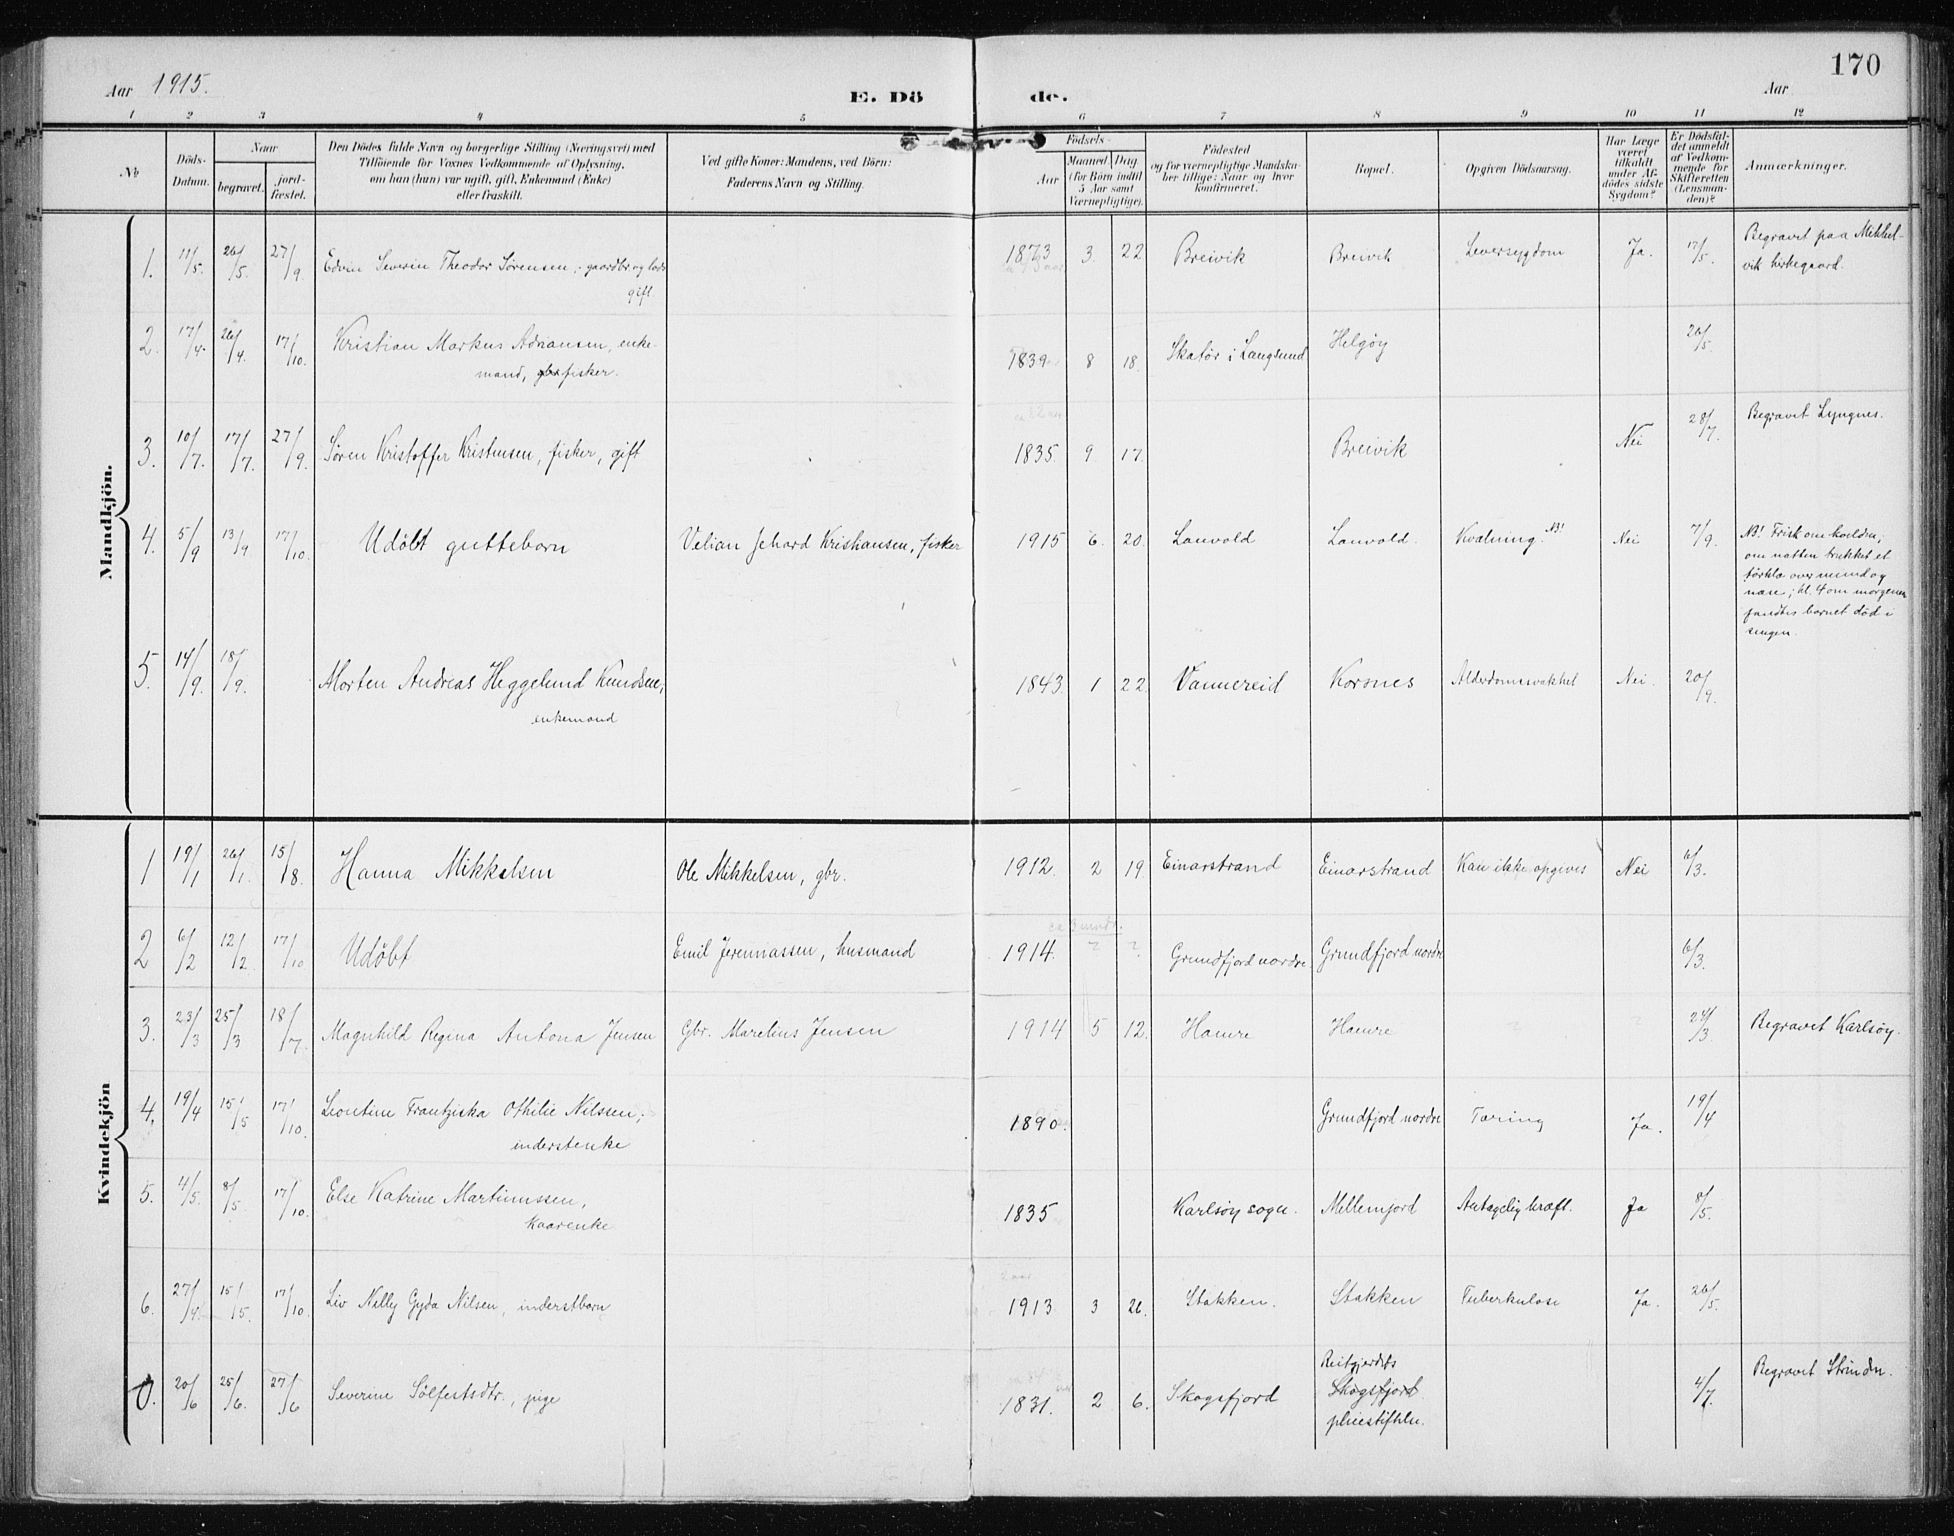 170
Aar 1915.
E. Döde.
Aar
1 2 3 4 5 6 7 8 9 10 11 12
No
Döds-Datum.
Naar
begravet.
jordfæstet.
Den Dödes fulde Navn og borgerlige Stilling (Næringsvei) med
Tilföiende for Voxnes Vedkommende af Oplysning,
om han (hun) var ugift, gift, Enkemand (Enke)
eller fraskilt.
Ved gifte Koner: Mandens, ved Börn:
Faderens Navn og Stilling.
Födsels-
Aar
Maaned. Dag
(for Börn indtil
5 Aar samt
Værnepligtige).
Födested
og for værnepligtige Mandskaber
tillige: Naar og hvor
konfirmeret.
Bopæl.
Opgiven Dödsaarsag.
Har Læge
været
tilkaldt
under Afdödes
sidste
Sygdom?
Er Dödsfaldet
anmeldt
af Vedkommende
for
Skifteretten
(Lensmanden)?
Anmærkninger.
Mandkjön.
1. 11/5. 26/5. 27/9. Edvin Severin Theodor Sörensen, gaardbr og lods
gift.
1873 3. 22 Breivik Breivik Leversygdom Ja. 17/5. Begravet paa Mikkelvik
kirkegaard.
2. 17/4. 26/4. 17/10. Kristian Markus Adriansen, enkemand,
fisker.
1839 8 18. Skatör i Langsund Helgöy 20/5.
3. 10/7. 17/7. 27/9. Sören Kristoffer Kristensen, fisker, gift
1835. 9. 17. Breivik Nei 28/7. Begravet Lyngnes.
4. 5/9 13/9 17/10. Udöbt guttebarn Velian Jehard Kristiansen, fisker
1915 6. 20. Lanvold Lanvold. Kvælning. NB! Nei 7/9. NB! Frisk om kvelden;
om natten trukket et
törklæ over mund og
næse; kl. 4 om morgenen
fandtes barnet död i
sengen.
5. 14/9. 18/9. Morten Andreas Heggelund Knudsen,
enkemand
1843. 1 22. Vannereid Korsnes Alderdomssvakhet Nei. 20/9.
Kvindekjön
1 19/1 26/1. 15/8. Hanna Mikkelsen Ole Mikkelsen, gbr.
1912. 2 19. Einarstrand Einarstrand Kan ikke opgives Nei 6/3.
2 6/2 12/2. 17/10 Udöbt Emil Jeremiassen, husmand
ca 3 mndr.
1914. ? ? Grundfjord nordre Grundfjord nordre 6/3.
3. 23/3 25/3 18/7. Magnhild Regina Antona Jensen Gbr. Marelius Jensen
1914 5 12. Hamre Hamre 24/3 Begravet Karlsöy.
4. 19/4 15/5 17/10. Leontine Frantziska Othilie Nilssen;
inderstenke
1890. Grundfjord nordre Tæring Ja. 19/4
5. 4/5. 8/5 17/10. Else Katrine Martinussen,
kaarenke
1835 Karlsöy sogn. Mellemjord Antagelig kræft. Ja 8/5.
6. 27/4. 15/5. 17/10. Liv Nelly Gyda Nilsen, inderstbarn
2 aar
1913 3 26. Stakken. Stakken Tuberkulose Ja. 26/5.
0. 20/6 25/6. 27/6 Severine Sölfestsdtr., pige
1831. 2 6. Skogsfjord Reitgjerdets
Skogsfjord
pleiestiftelse.
4/7. Begravet Strinda.